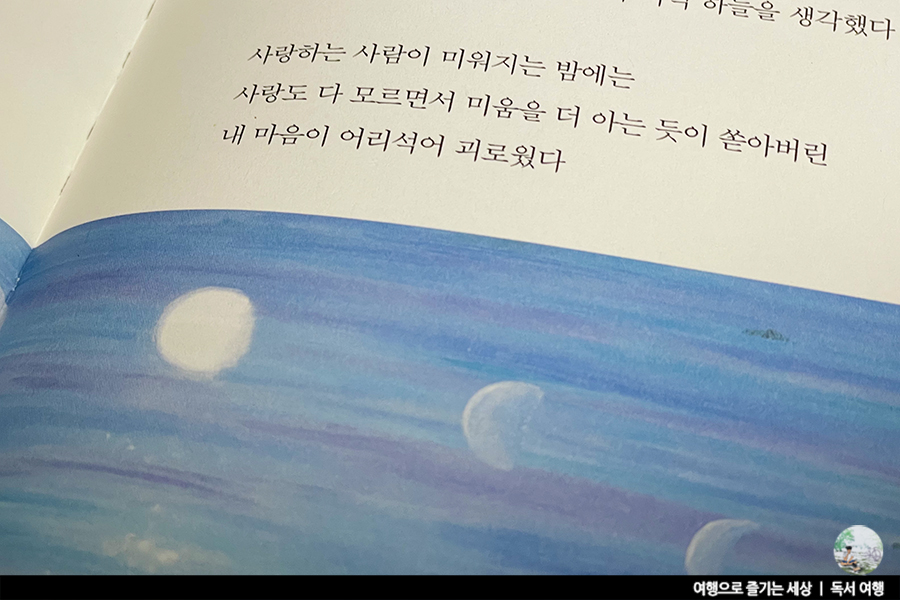 하늘을 생각했다
사랑하는 사람이 미워지는 밤에는
사랑도 다 모르면서 미움을 더 아는 듯이 쏟아버린
내 마음이 어리석어 괴로웠다
여행으로 즐기는 세상 | 독서 여행